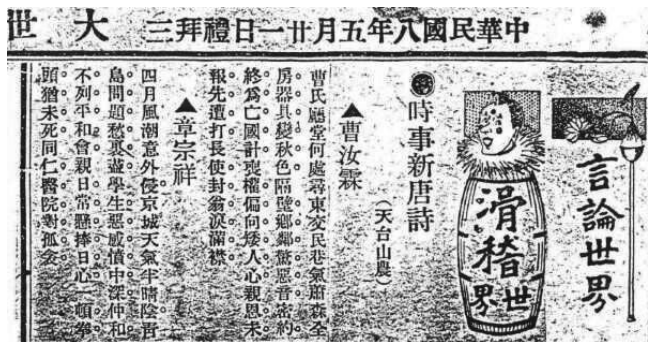 中華民國八年五月廿一日禮拜三
大世
言論世界
滑稽世界
時事新唐詩
(天台山農)
▲曹汝霖
曹氏廳堂何處尋東交民巷氣蕭森全
房器具變秋色隔壁鄉鄰驚惡音密約
終爲亡國計喪權偏向矮人心親恩未
報先遭打長使封翁淚滿襟
▲章宗祥
四月風潮意外侵京城天氣半晴陰靑
島問題愁裏盡學生惡感憤中深仲和
不列平和會親日常懸捧日心一頓拳
頭猶未死同仁醫院對孤衾